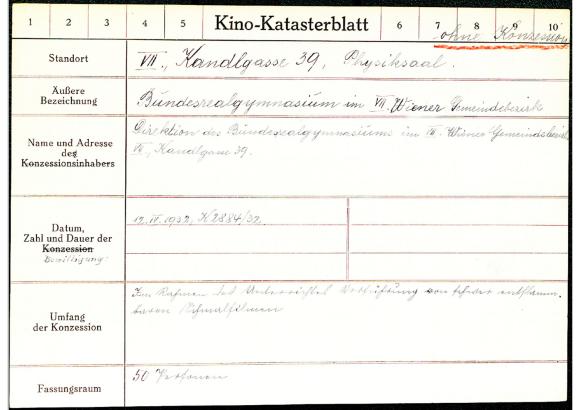 1 2 3 4 5 Kino-Katasterblatt 6 7 8 9 10
ohne Konzession
Standort
VII., Kandlgasse 39, Physiksaal.
Äußere
Bezeichnung
Bundesrealgymnasium im VII. Wiener Gemeindebezirk
Name und Adresse
des
Konzessionsinhabers
Direktion des Bundesrealgymnasiums im VII. Wiener Gemeindebezirk
VII., Kandlgasse 39.
Datum,
Zahl und Dauer der
Konzession
Bewilligung:
12. IV. 1932, K 2884/32.
Umfang
der Konzession
Im Rahmen des Unterrichtes Vorführung von schwer entflamm-
baren Schmalfilmen
Fassungsraum
50 Personen